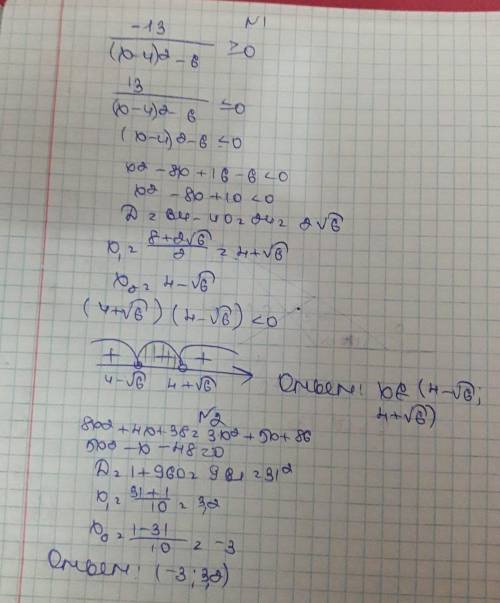 N1
-13 / (x-4)2 - 6 ≥ 0
13 / (x-4)2 - 6 ≤ 0
(x-4)2 - 6 ≤ 0
x2 - 8x + 16 - 6 < 0
x2 - 8x + 10 < 0
D = 64 - 40 = 24 = 2√6
x₁ = 8+2√6 / 2 = 4+√6
x₂ = 4-√6
(4+√6) (4-√6) < 0
+ + +
4-√6 4+√6
Ответ: x∈ (4-√6;
4+√6)
N2
8x2 + 4x + 38 = 3x2 + 5x + 86
5x2 - x - 48 = 0
D = 1 + 960 = 961 = 31²
x₁ = 31+1 / 10 = 3,2
x₂ = 1-31 / 10 = -3
Ответ: (-3; 3,2)